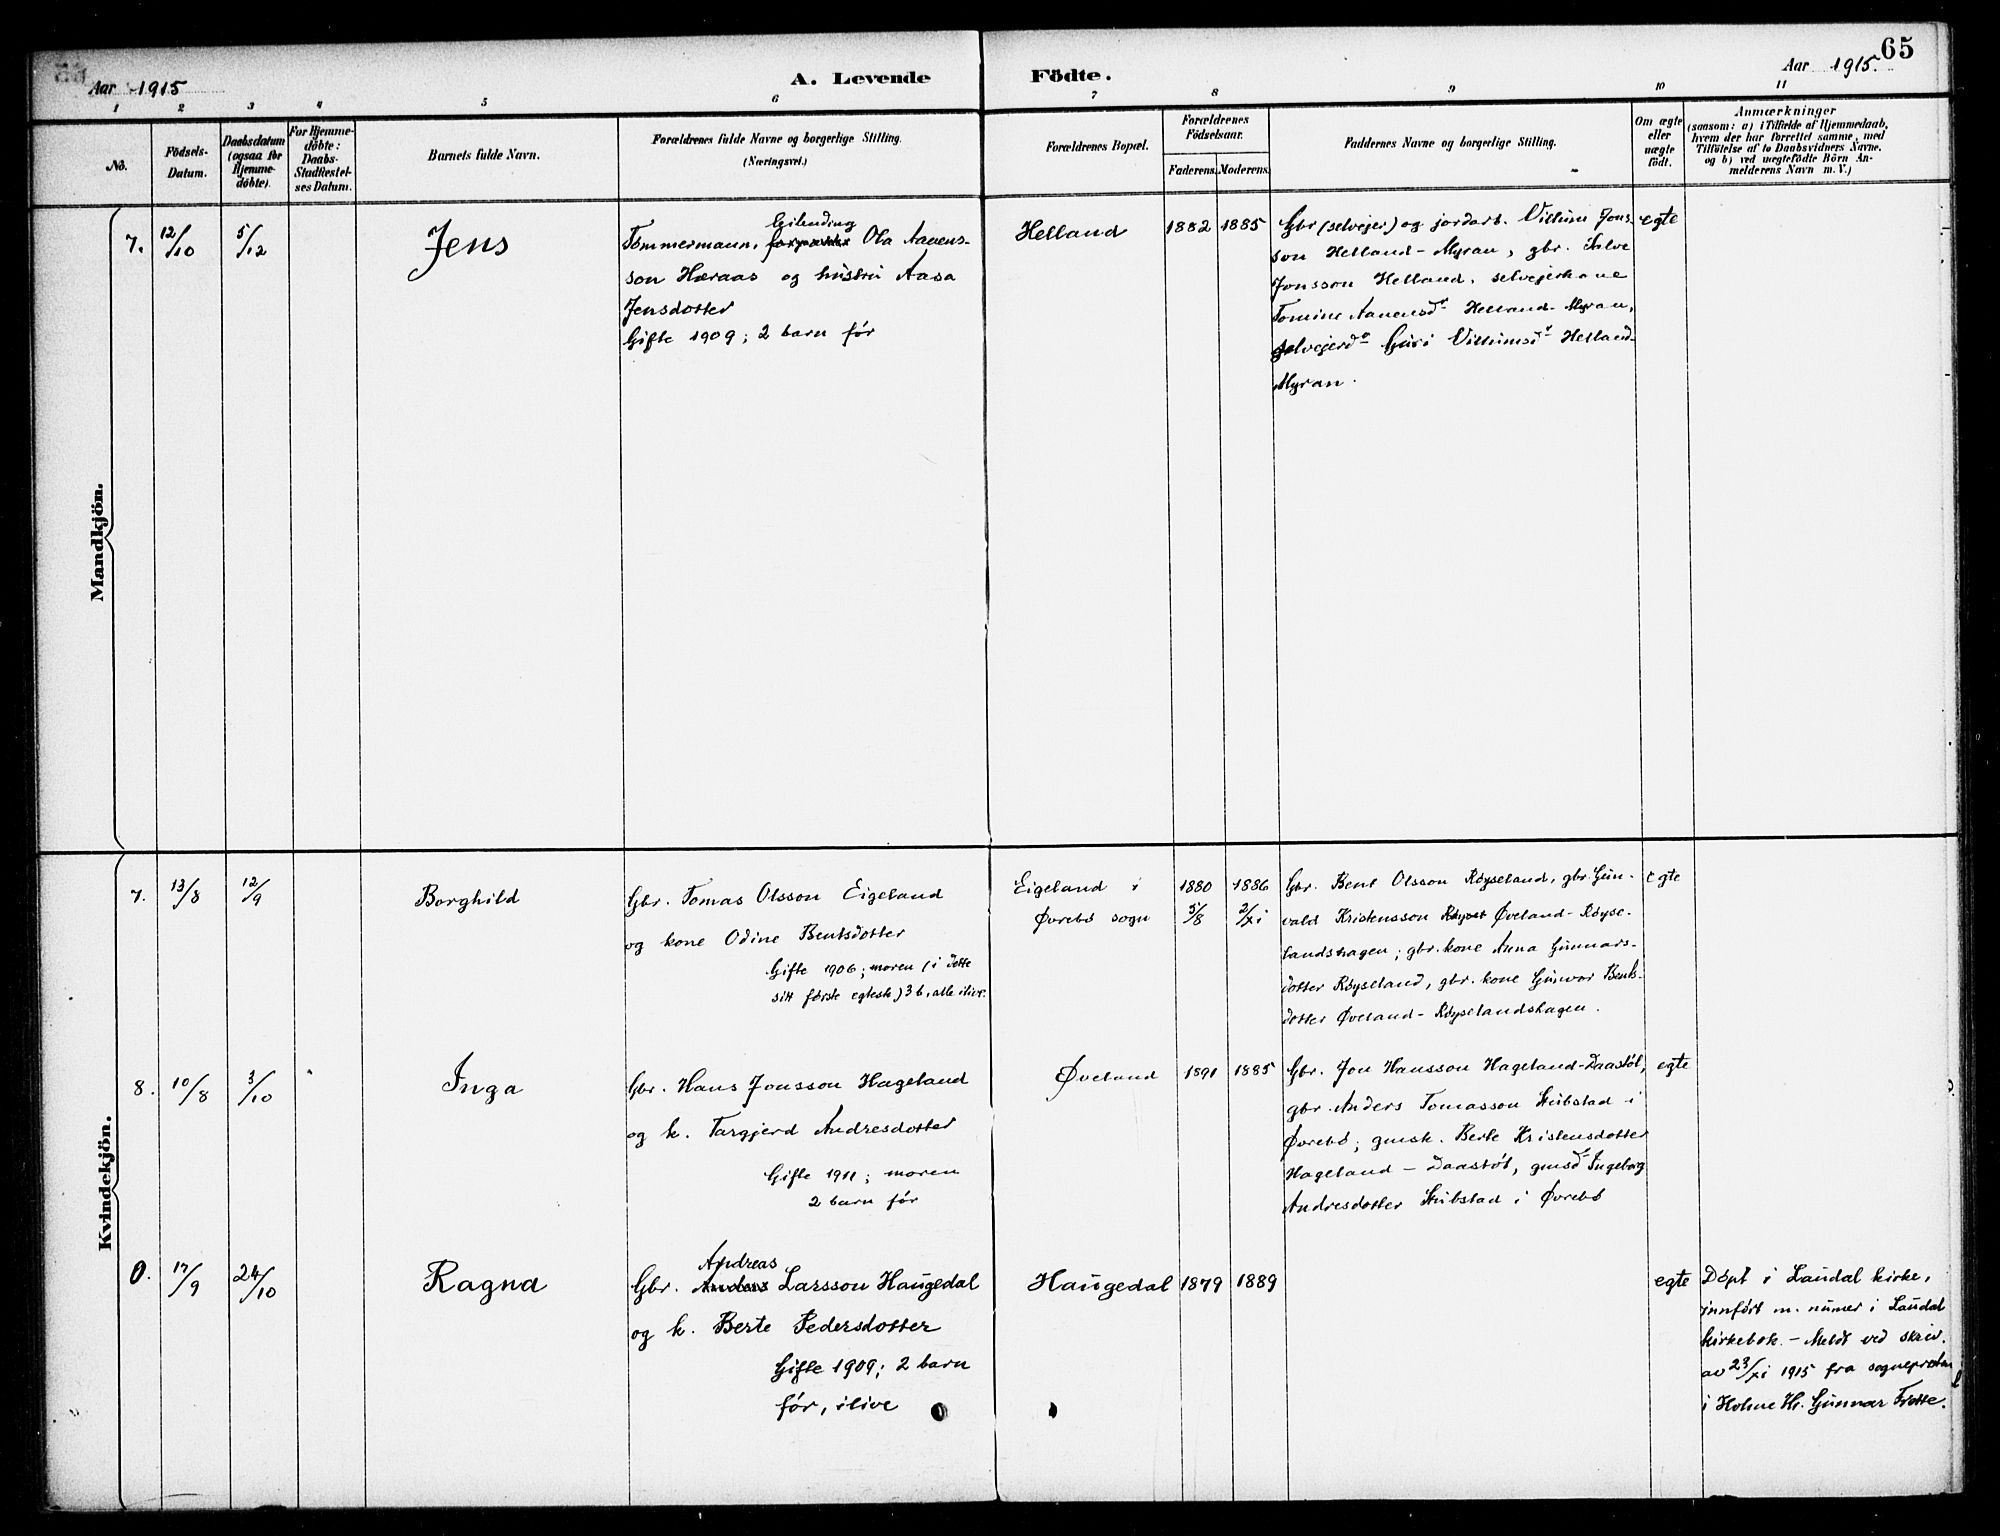 65
Aar 1915
A. Levende Födte.
Aar 1915.
1 2 3 4 5 6 7 8 9 10 11
No.
Födsels-
Datum.
Daabsdatum
(ogsaa for
Hjemme-
döbte).
For Hjemme-
döbte:
Daabs-
Stadfestel-
ses Datum.
Barnets fulde Navn.
Forældrenes fulde Navne og borgerlige Stilling.
(Næringsvei.)
Forældrenes Bopæl.
Forældrenes
Födselsaar.
Faderens. Moderens.
Faddernes Navne og borgerlige Stilling.
Om ægte
eller
uægte
født.
Anmærkninger
(saasom: a) i Tilfælde af Hjemmedaab,
hvem der har forrettet samme, med
Tilföielse af to Daabsvidners Navne.
og b) ved uægtefödte Börn An-
melderens Navn m. V.)
Mandkjön.
7.
12/10
5/12
Jens
Gilending
Tømmermann, Ola Aanens-
son Hæraas og hustru Aasa
Jensdotter
Gifte 1909; 2 barn før
Helland
1882
1885
Gbr (selvejer) og jordarb. Vilhim Jons-
son Helland-Myran, gbr. Salve
Jonsson Helland, selvejerkone
Tomine Aanensdr Helland-Myran,
selvejerdr Guri Vilhimsdr Helland-
Myran.
egte
Kvindekjön.
7.
13/8
12/9
Borghild
Gbr. Tomas Olsson Eigeland
og kone Odine Bentsdotter
Gifte 1906; moren (i dette
sitt første egtesk.) 3 b, alle ilive.
Eigeland i
Øvrebø sogn
1880
5/8
1886
2/xi
Gbr. Bent Olsson Røyseland, gbr. Gun-
vald Kristensson Røysel Øveland-Røyse-
landshagen; gbr. kone Anna Gunnars-
dotter Røyseland, gbr. kone Gunvor Bents-
dotter Øveland-Røyselandshagen.
egte
8.
10/8
3/10
Inga
Gbr. Hans Jonsson Hageland
og k. Targjerd Andresdotter
Gifte 1911; moren
2 barn før
Øveland
1891
1885
Gbr. Jon Hansson Hageland-Daastøl,
gbr. Anders Tomasson Stubstad i
Øvrebø; gmsk. Berte Kristensdotter
Hageland-Daastøl, gmsdr Ingeborg
Andresdotter Stubstad i Øvrebø
egte
0.
17/9
24/10
Ragna
Andreas
Gbr. Anders Larsson Haugedal
og k. Berte Pedersdotter
Gifte 1909; 2 barn
før, ilive
Haugedal
1879
1889
egte
Døpt i Laudal kirke,
innført m. numer i Laudal
kirkebok. - Meldt ved skriv.
av 23/xi 1915 fra sogneprest
i Holme Hr. Gunnar